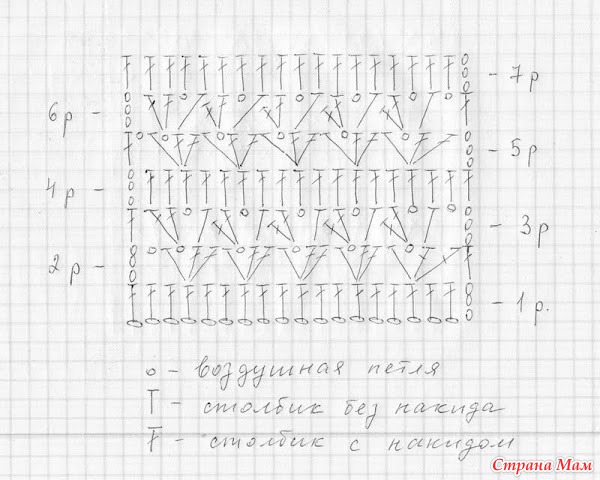 - 7р
6р -
- 5р
4р -
- 3р
2р -
- 1р.
о - воздушная петля
Т - столбик без накида
Ŧ - столбик с накидом
Страна Мам